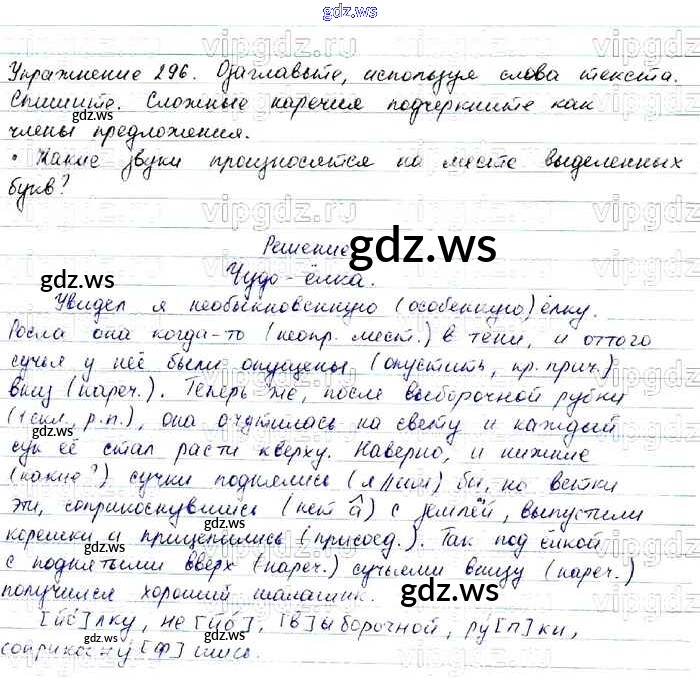 gdz.ws
Упражнение 296. Озаглавьте, используя слова текста.
Спишите. Сложные наречия подчеркните как
члены предложения.
• Какие звуки произносятся на месте выделенных
букв?
Решение
Чудо-ёлка.
Увидел я необыкновенную (особенную) ёлку.
Росла она когда-то (неопр. мест.) в тени, и оттого
сучья у неё были опущены (опустить, пр. прич.)
вниз (нареч.). Теперь же, после выборочной рубки
(1 скл., р.п.), она очутилась на свету и каждый
сук её стал расти кверху. Наверно, и нижние
(какие?) сучки поднялись (я//им) бы, но ветки
эти, соприкоснувшись (нет а) с землёй, выпустили
корешки и прицепились (присоед.). Так под ёлкой
с поднятыми вверх (нареч.) сучьями внизу (нареч.)
получился хороший шалашик.
[йо]лку, не[йо], [в]ыборочной, ру[п]ки,
соприкосну[ф]шись.
gdz.ws
gdz.ws
gdz.ws
gdz.ws
gdz.ws
gdz.ws
gdz.ws